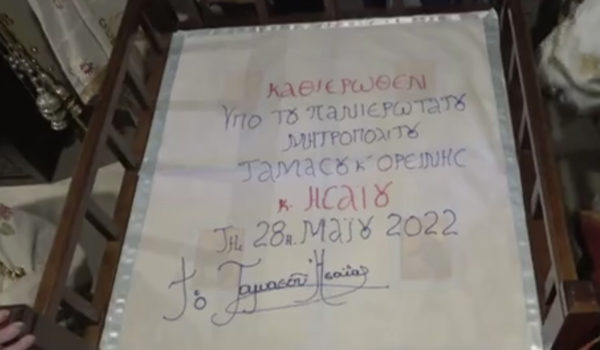 ΚΑΘΙΕΡΩΘΕΝ
ΥΠΟ ΤΟΥ ΠΑΝΙΕΡΩΤΑΤΟΥ
ΜΗΤΡΟΠΟΛΙΤΟΥ
ΤΑΜΑΣΟΥ Κ' ΟΡΕΙΝΗΣ
κ. ΗΣΑΙΟΥ
ΤΗι 28η ΜΑΪΟΥ 2022
† ὁ Ταμασοῦ Ἠσαΐας